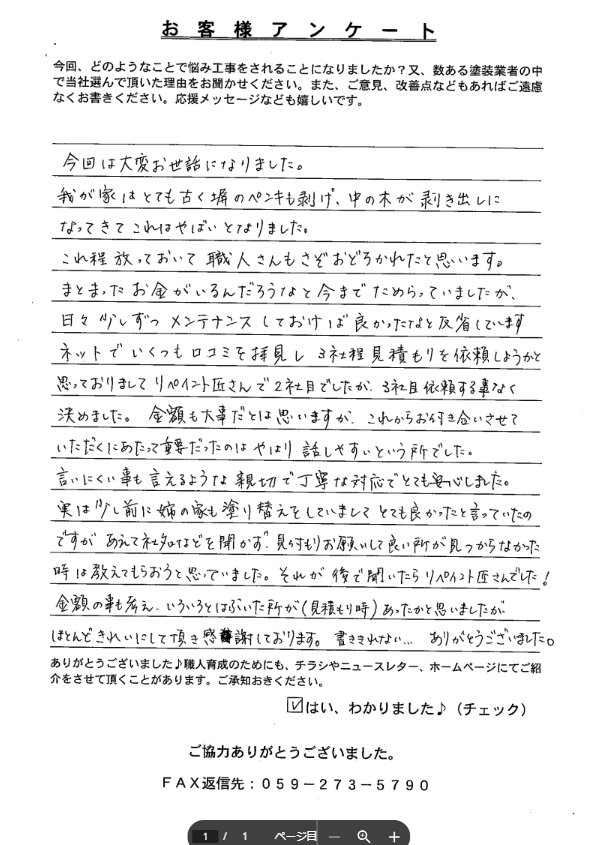 お客様アンケート
今回、どのようなことで悩み工事をされることになりましたか？又、数ある塗装業者の中
で当社選んで頂いた理由をお聞かせください。また、ご意見、改善点などもあればご遠慮
なくお書きください。応援メッセージなども嬉しいです。
今回は大変お世話になりました。
我が家はとても古く塀のペンキも剥げ、中の木が剥き出しに
なってきてこれはやばいとなりました。
これ程放っておいて職人さんもさぞおどろかれたと思います。
まとまったお金がいるんだろうなと今までためらっていましたが、
日々少しずつメンテナンスしておけば良かったなと反省しています
ネットでいくつも口コミを拝見し3社程見積もりを依頼しようかと
思っておりましてリペイント匠さんで2社目でしたが、3社目依頼する事なく
決めました。金額も大事だとは思いますが、これからお付き合いさせて
いただくにあたって重要だったのはやはり話しやすいという所でした。
言いにくい事も言えるような親切で丁寧な対応でとても安心しました。
実は少し前に姉の家も塗り替えをしていましてとても良かったと言っていたの
ですがあえて社名などを聞かず、見付もりお願いして良い所が見つからなかった
時は教えてもらおうと思っていました。それが後で聞いたらリペイント匠さんでした！
金額の事も考え、いろいろとはぶいた所が(見積もり時)あったかと思いましたが
ほとんどきれいにして頂き感謝しております。書ききれない… ありがとうございました。
ありがとうございました♪職人育成のためにも、チラシやニュースレター、ホームページにてご紹
介をさせて頂くことがあります。ご承知おきください。
☑はい、わかりました♪（チェック）
ご協力ありがとうございました。
ＦＡＸ返信先：０５９－２７３－５７９０
1 / 1 ページ目 － ＋